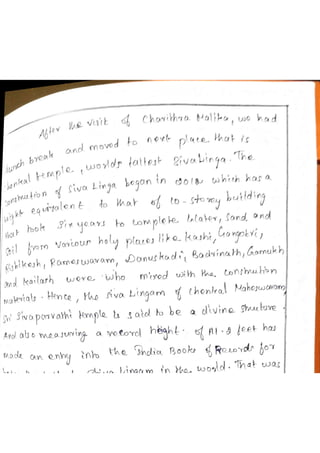 After the visit of Charithra Malika, we had
lunch break and moved to next place that is
chenkal temple, worlds tallest SivaLinga. The
construction of Siva Linga began in 2012 which has a
hight equivalent to that of 10-storey building
that took six years to complete. Water, sand and
soil from various holy places like Kashi, Gangotri,
Rishikesh, Rameswaram, Danuskodi, Badrinath, Gomukh
and Kailash were who mixed with the constrution
materials. Hence, the Siva Lingam of chenkal Maheswaram
Sri Sivaparvathi temple is said to be a divine structure.
And also measuring a record hight of 111.2 feet has
made an entry into the India Book of Records for
lingam in the world. That was